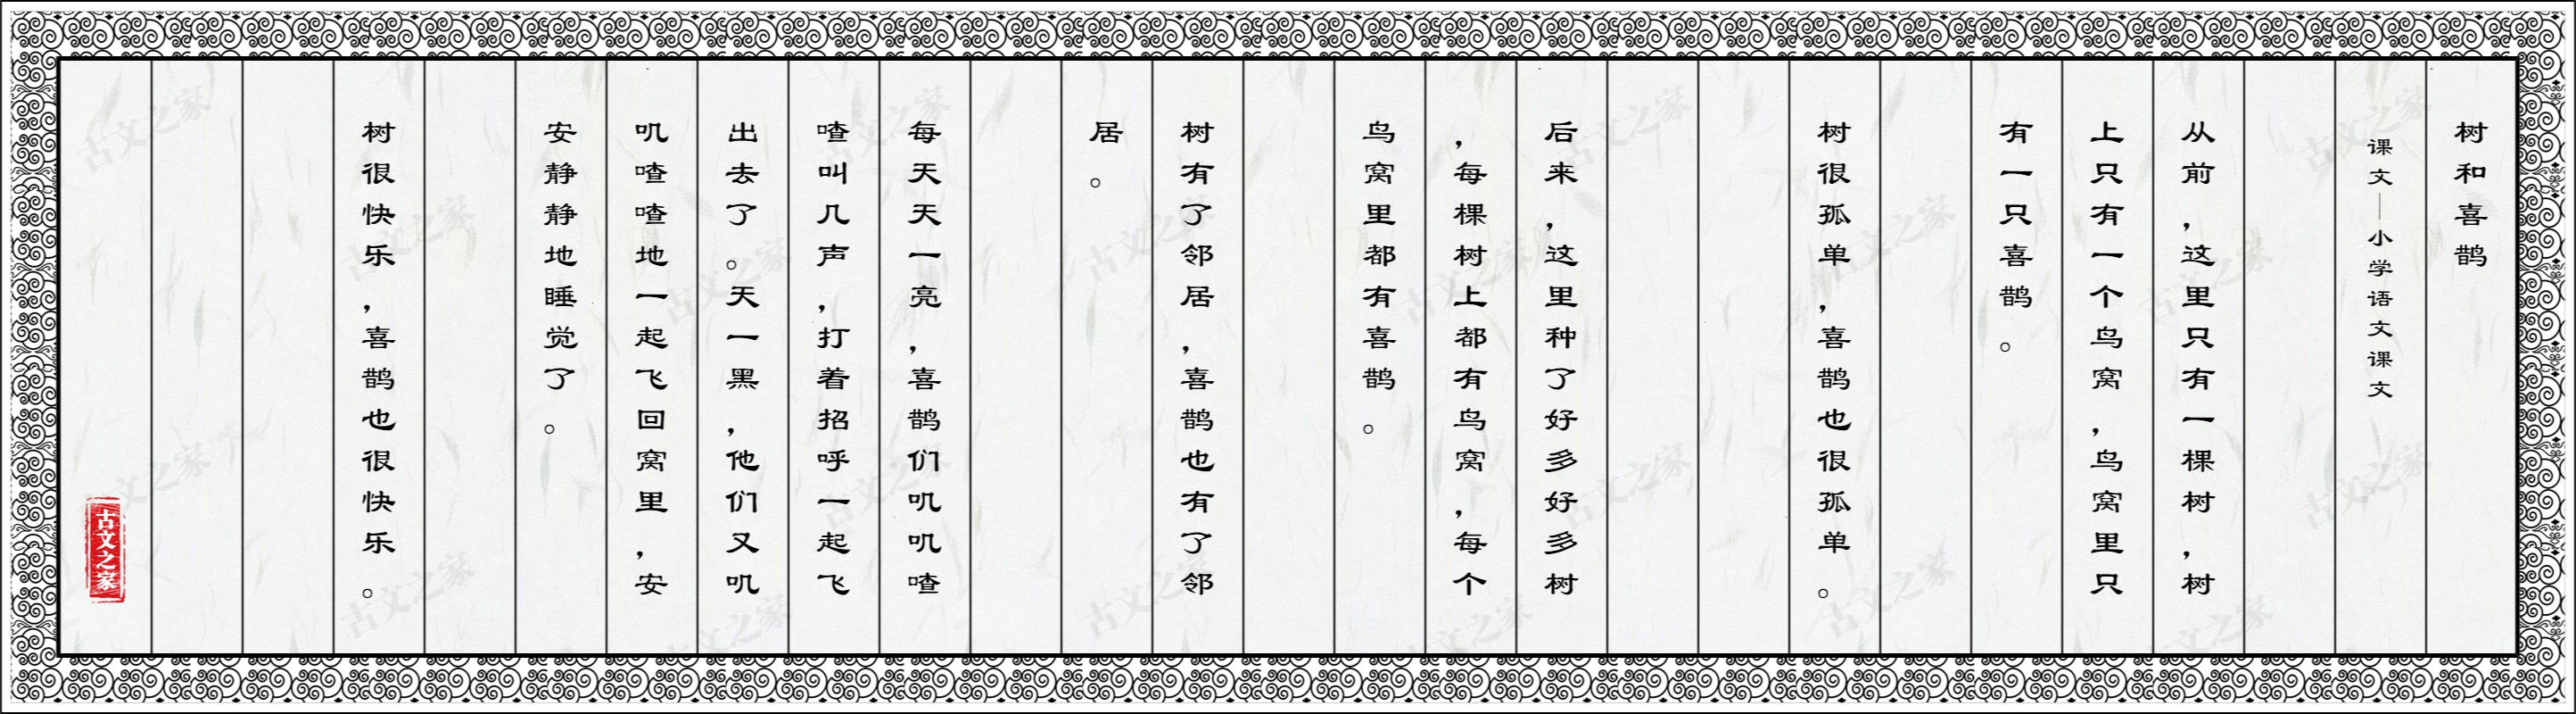 树和喜鹊
课文—小学语文课文
从前，这里只有一棵树，树
上只有一个鸟窝，鸟窝里只
有一只喜鹊。
树很孤单，喜鹊也很孤单。
后来，这里种了好多好多树
，每棵树上都有鸟窝，每个
鸟窝里都有喜鹊。
树有了邻居，喜鹊也有了邻
居。
每天天一亮，喜鹊们叽叽喳
喳叫几声，打着招呼一起飞
出去了。天一黑，他们又叽
叽喳喳地一起飞回窝里，安
安静静地睡觉了。
树很快乐，喜鹊也很快乐。
古文之家